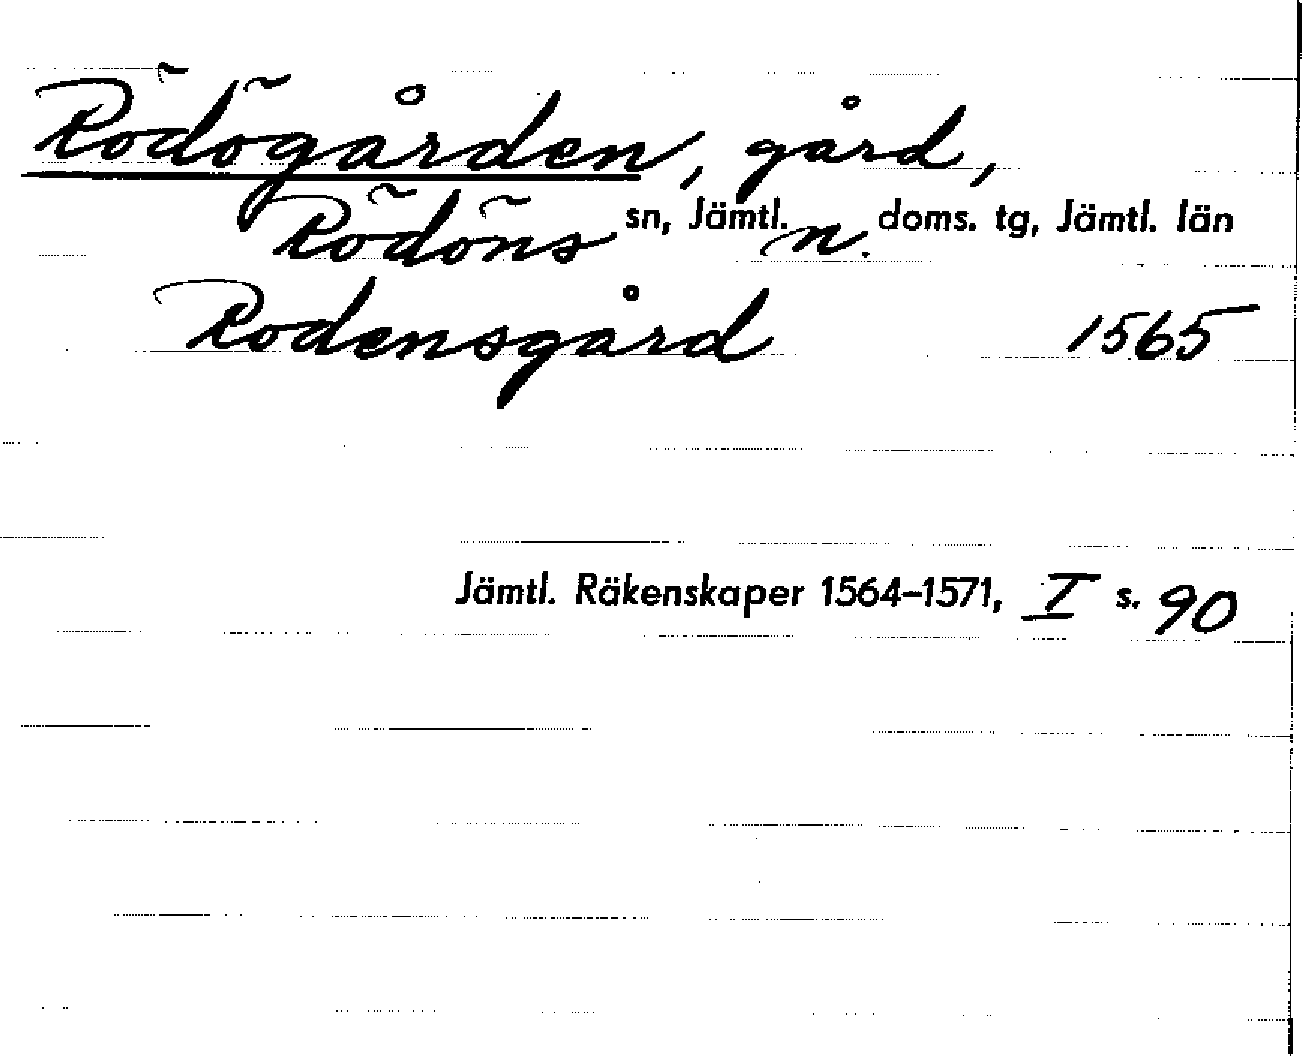 Rödögården, gård,
Rödöns sn, Jämtl. n. doms. tg, Jämtl. län
Rodensgård 1565
Jämtl. Räkenskaper 1564–1571, I s. 90